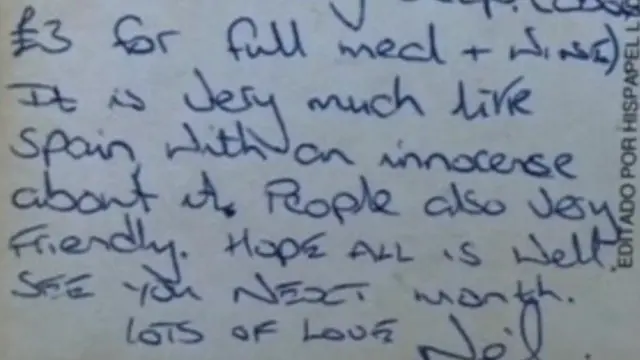 £3 for full meal + WINE)
It is very much like
Spain with an innocense
about it. People also very
Friendly. HOPE ALL is well.
SEE YOU NEXT month.
LOTS OF LOVE Neil.
EDITADO POR HISPAPEL